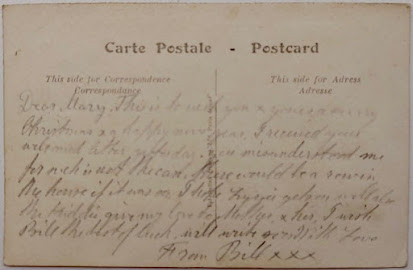 Carte Postale - Postcard
This side for Correspondence
Correspondance
This side for Adress
Adresse
Dear Mary, This is to wish you & yours a merry
Christmas & a happy new year, I received your
welcomed letter yesterday. you misunderstood me
for such is not the case, there would be a row in
the house if it was so, I hope
the kiddies, give my love to & her, I wish
Bill the best of luck, will write With Love
From Bill xxx